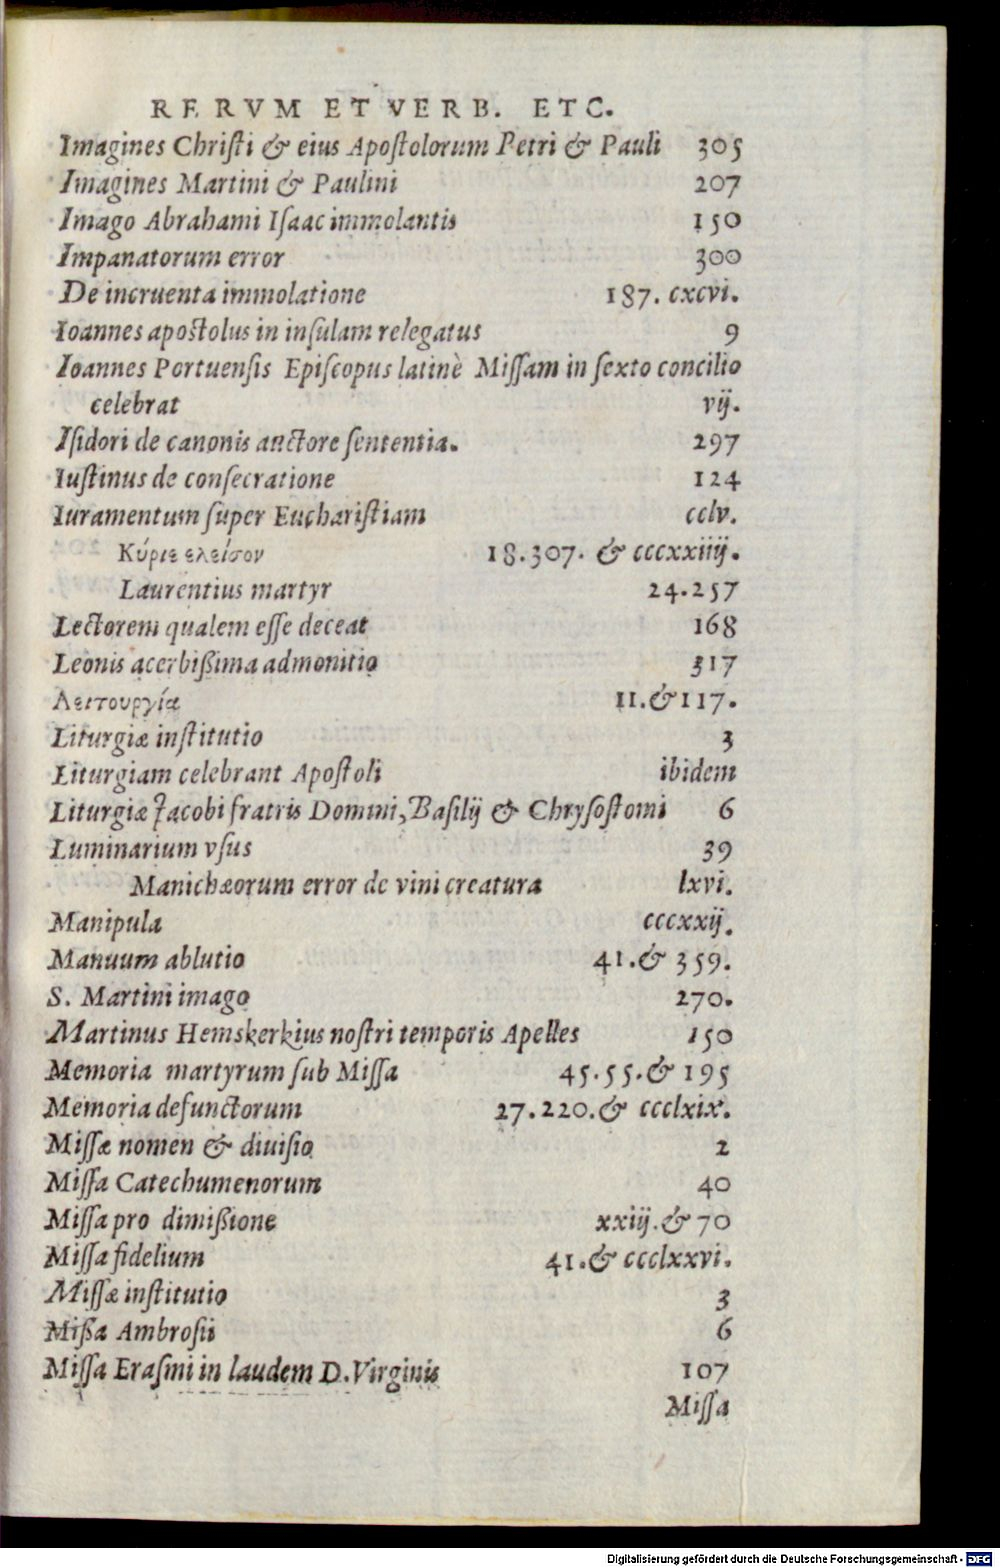 RERVM ET VERB. ETC.
Imagines Chriſti & eius Apoſtolorum Petri & Pauli 305
Imagines Martini & Paulini 207
Imago Abrahami Iſaac immolantis 150
Impanatorum error 300
De incruenta immolatione 187. cxcvi.
Ioannes apostolus in inſulam relegatus 9
Ioannes Portuenſis Epiſcopus latinè Miſſam in ſexto concilio
celebrat vij.
Iſidori de canonis auctore ſententia. 297
Iuſtinus de conſecratione 124
Iuramentum ſuper Euchariſtiam cclv.
Κύριε ελείσον 18.307. & cccxxiiij.
Laurentius martyr 24.257
Lectorem qualem eſſe deceat 168
Leonis acerbißima admonitio 317
Λειτουργία 11.&117.
Liturgiæ inſtitutio 3
Liturgiam celebrant Apoſtoli ibidem
Liturgiæ Jacobi fratris Domini, Baſilij & Chryſoſtomi 6
Luminarium vſus 39
Manichæorum error de vini creatura lxvi.
Manipula cccxxij.
Manuum ablutio 41.& 359.
S. Martini imago 270.
Martinus Hemskerkius noſtri temporis Apelles 150
Memoria martyrum ſub Miſſa 45.55.& 195
Memoria defunctorum 27.220.& ccclxix.
Miſſæ nomen & diuiſio 2
Miſſa Catechumenorum 40
Miſſa pro dimißione xxiij.& 70
Miſſa fidelium 41.& ccclxxvi.
Miſſæ inſtitutio 3
Mißa Ambroſii 6
Miſſa Eraſmi in laudem D. Virginis 107
Miſſa
Digitalisierung gefördert durch die Deutsche Forschungsgemeinschaft - DFG